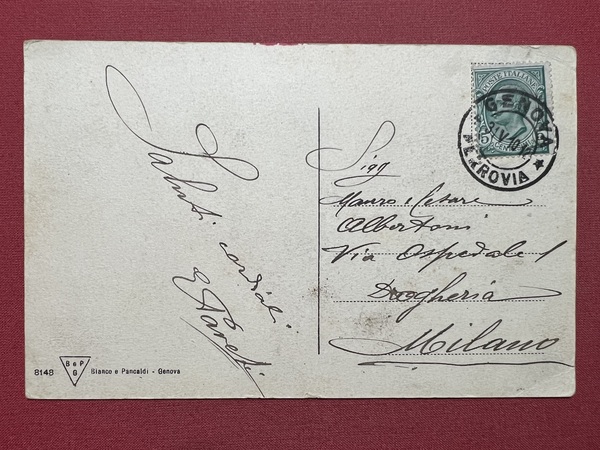 Saluti cordiali
Sigg
Mauro e Cesare
Albertoni
Via Ospedale 1
Drogheria
Milano
POSTE ITALIANE
GENOVA
FERROVIA
8148
B e P
G
Bianco e Pancaldi - Genova